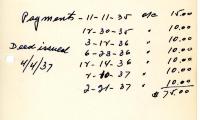 Payments - 11-11-35 a/c 15.00
12-30-35 " 10.00
Deed issued 3-14-36 " 10.00
4/4/37 6-23-36 " 10.00
12-14-36 " 10.00
1-30-37 " 10.00
2-27-37 " 10.00
$75.00